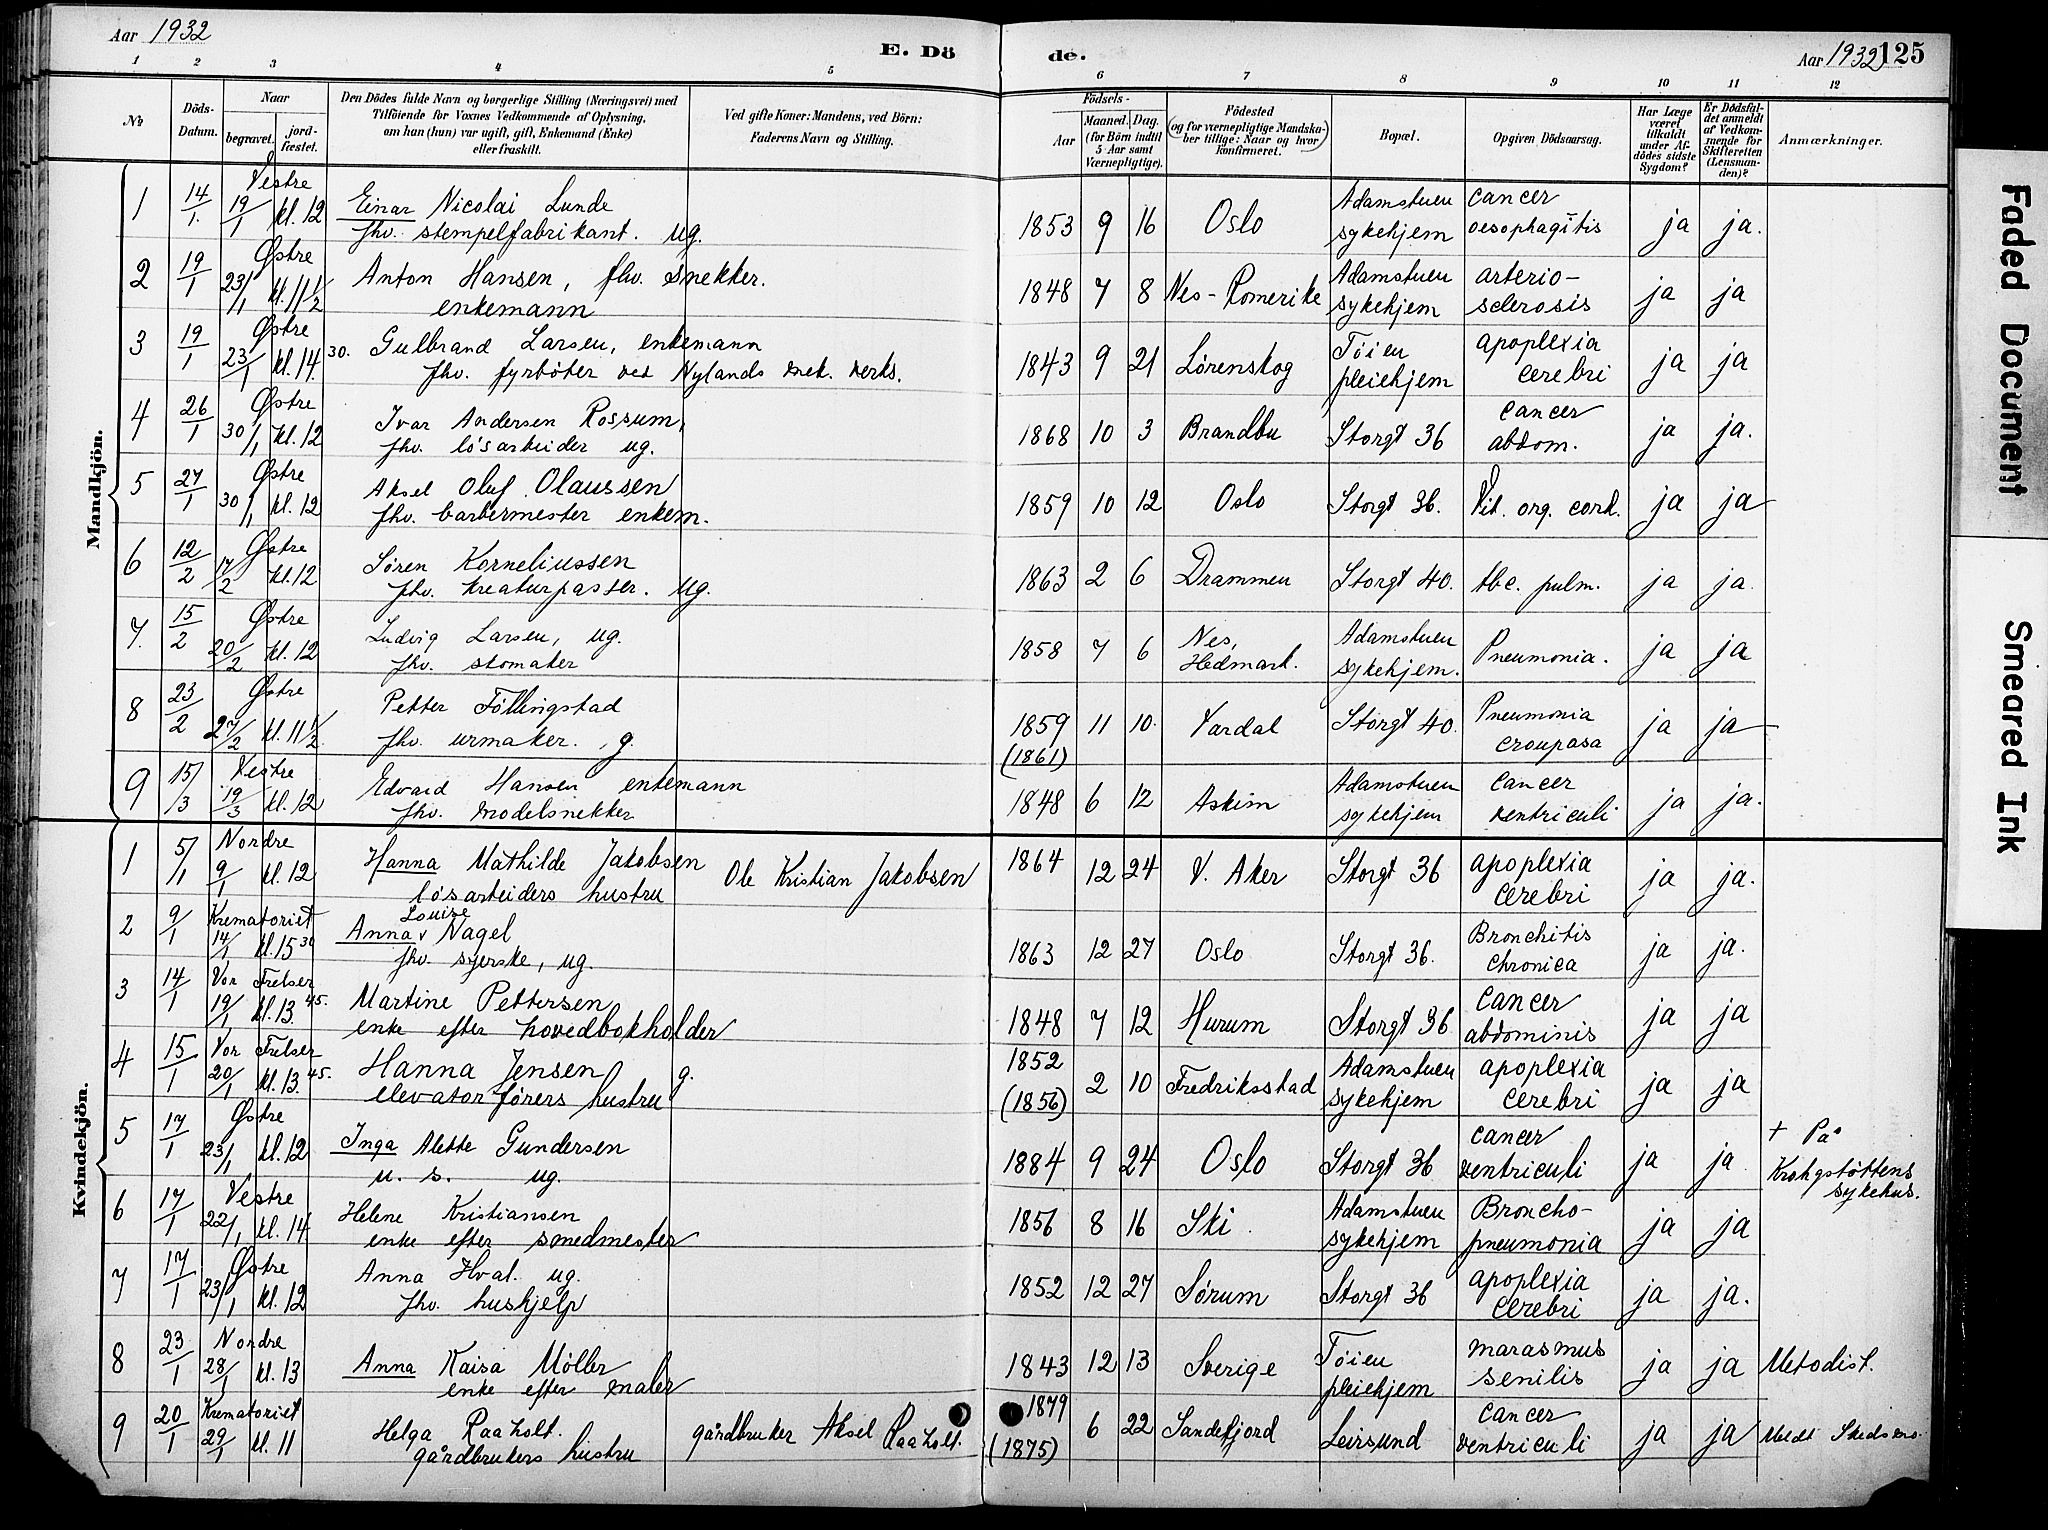 Aar 1932
E. Dö
de.
Aar 1932 125
1 2 3 4 5 6 7 8 9 10 11 12
№
Döds-Datum.
Naar
begravet.
jord-fæstet.
Den Dödes fulde Navn og borgerlige Stilling (Næringsvei) med
Tilföiende för Voxnes Vedkommende af Oplysning,
om han (hun) var ugift, gift, Enkemand (Enke)
eller fraskilt.
Ved gifte Koner: Mandens, ved Börn:
Faderens Navn og Stilling.
Födsels-
Aar
Maaned. Dag.
(for Börn indtil
5 Aar samt
Værnepligtige).
Födested
(og for værnepligtige Mandska-
ber tillige: Naar og hvor
konfirmeret.
Bopæl.
Opgiven Dödsaarsag.
Har Læge
været
tilkaldt
under Af-
dödes sidste
Sygdom?
Er Dödsfal-
det anmeldt
af Vedkom-
mende for
Skifteretten
(Lensman-
den)?
Anmærkninger.
Mandkjön.
1 14/1. Vestre 19/1 kl. 12 Einar Nicolai Lunde
fhv. stempelfabrikant. ug. 1853 9 16 Oslo Adamstuen sykehjem cancer oesophagitis ja ja.
2 19/1 Østre 23/1 kl. 11 1/2 Anton Hansen, fhv. snekker.
enkemann 1848 7 8 Nes - Romerike Adamstuen sykehjem arterio-sclerosis ja ja
3 19/1 Østre 23/1 kl. 14.30. Gulbrand Larsen, enkemann
fhv. fyrbøter ved Nylands mek. verks. 1843 9 21 Lørenskog Tøien pleiehjem apoplexia cerebri ja ja
4 26/1 Østre 30/1 kl. 12 Ivar Andersen Rossum,
fhv. løsarbeider ug. 1868 10 3 Brandbu Storgt 36 cancer abdom. ja ja.
5 27/1 Østre 30/1 kl. 12 Aksel Oluf Olaussen
fhv. barbermester enkem. 1859 10 12 Oslo Storgt 36. Vit. org. cord. ja ja
6 12/2 Østre 17/2 kl. 12 Søren Korneliussen
fhv. kreaturpasser. ug. 1863 2 6 Drammen Storgt 40. tbc. pulm. ja ja.
7. 15/2 Østre 20/2 kl. 12 Ludvig Larsen, ug.
fhv. skomaker 1858 7 6 Nes, Hedmark. Adamstuen sykehjem. Pneumonia. ja ja
8 23/2 Østre 27/2 kl. 11 1/2. Petter Föllingstad
fhv. urmaker., g. 1859 (1861) 11 10. Vardal Storgt 40. Pneumonia croupasa ja ja
9 15/3 Vestre 19/3 kl. 12 Edvard Hansen enkemann
fhv. modelsnekker 1848 6 12 Askim Adamstuen sykehjem cancer ventriculi ja ja.
Kvindekjön.
1 5/1 Nordre 9/1 kl. 12 Hanna Mathilde Jakobsen
løsarbeiders hustru Ole Kristian Jakobsen 1864 12 24 V. Aker Storgt 36 apoplexia cerebri ja ja.
2 9/1 Krematoriet 14/1 kl. 15 30 Anna Louise Nagel
fhv. syerske, ug. 1863 12 27 Oslo Storgt 36. Bronchitis chronica ja ja.
3 14/1 Vor Frelser 19/1 kl. 13. 45. Martine Pettersen
enke efter hovedbokholder 1848 7 12 Hurum Storgt 36 cancer abdominis ja ja
4 15/1 Vor Frelser 20/1 kl. 13. 45. Hanna Jensen g.
elevatorførers hustru 1852 (1856) 2 10 Fredriksstad Adamstuen sykehjem apoplexia cerebri ja ja
5 17/1 Østre 23/1 kl. 12 Inga Alette Gundersen
u. s. ug. 1884 9 24 Oslo Storgt 36 cancer ventriculi ja ja. + På Krohgstøttens sykehus.
6 17/1 Vestre 22/1 kl. 14 Helene Kristiansen
enke efter smedmester 1856 8 16 Ski. Adamstuen sykehjem Broncho-pneumonia ja ja
7 17/1 Østre 23/1 kl. 12 Anna Hval. ug.
fhv. hushjelp 1852 12 27 Sørum Storgt 36 apoplexia cerebri ja ja.
8 23/1 Nordre 28/1 kl. 13 Anna Kaisa Møller
enke efter maler 1843 12 13 Sverige Tøien pleiehjem marasmus senilis ja ja Metodist.
9 20/1 Krematoriet 29/1 kl. 11 Helga Raaholt.
gårdbrukers hustru gårdbruker Aksel Raaholt. 1879 (1875) 6 22 Sandefjord Leirsund cancer ventriculi ja ja Meldt Skedsmo.
Faded Document
Smeared Ink